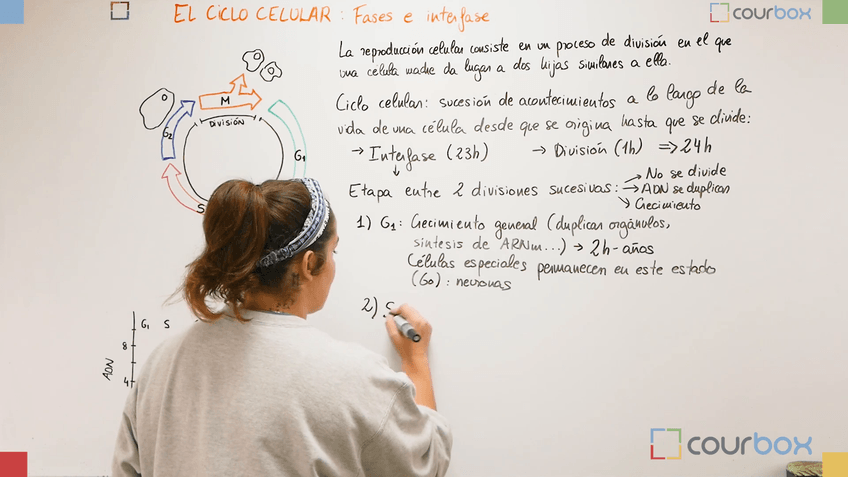 EL CICLO CELULAR : Fases e interfase
courbox
La reproducción celular consiste en un proceso de división en el que
una célula madre da lugar a dos hijas similares a ella.
Ciclo celular: sucesión de acontecimientos a lo largo de la
vida de una célula desde que se origina hasta que se divide:
→ Interfase (23h) → División (1h) ⇒ 24h
↓
Etapa entre 2 divisiones sucesivas: → No se divide
→ ADN se duplican
→ Crecimiento
1) G1: Crecimiento general (duplican orgánulos,
síntesis de ARNm...) → 2h - años
Células especiales permanecen en este estado
(G0) : neuronas
2) S
M
DIVISIÓN
G2
G1
S
G1 S
8
4
ADN
courbox